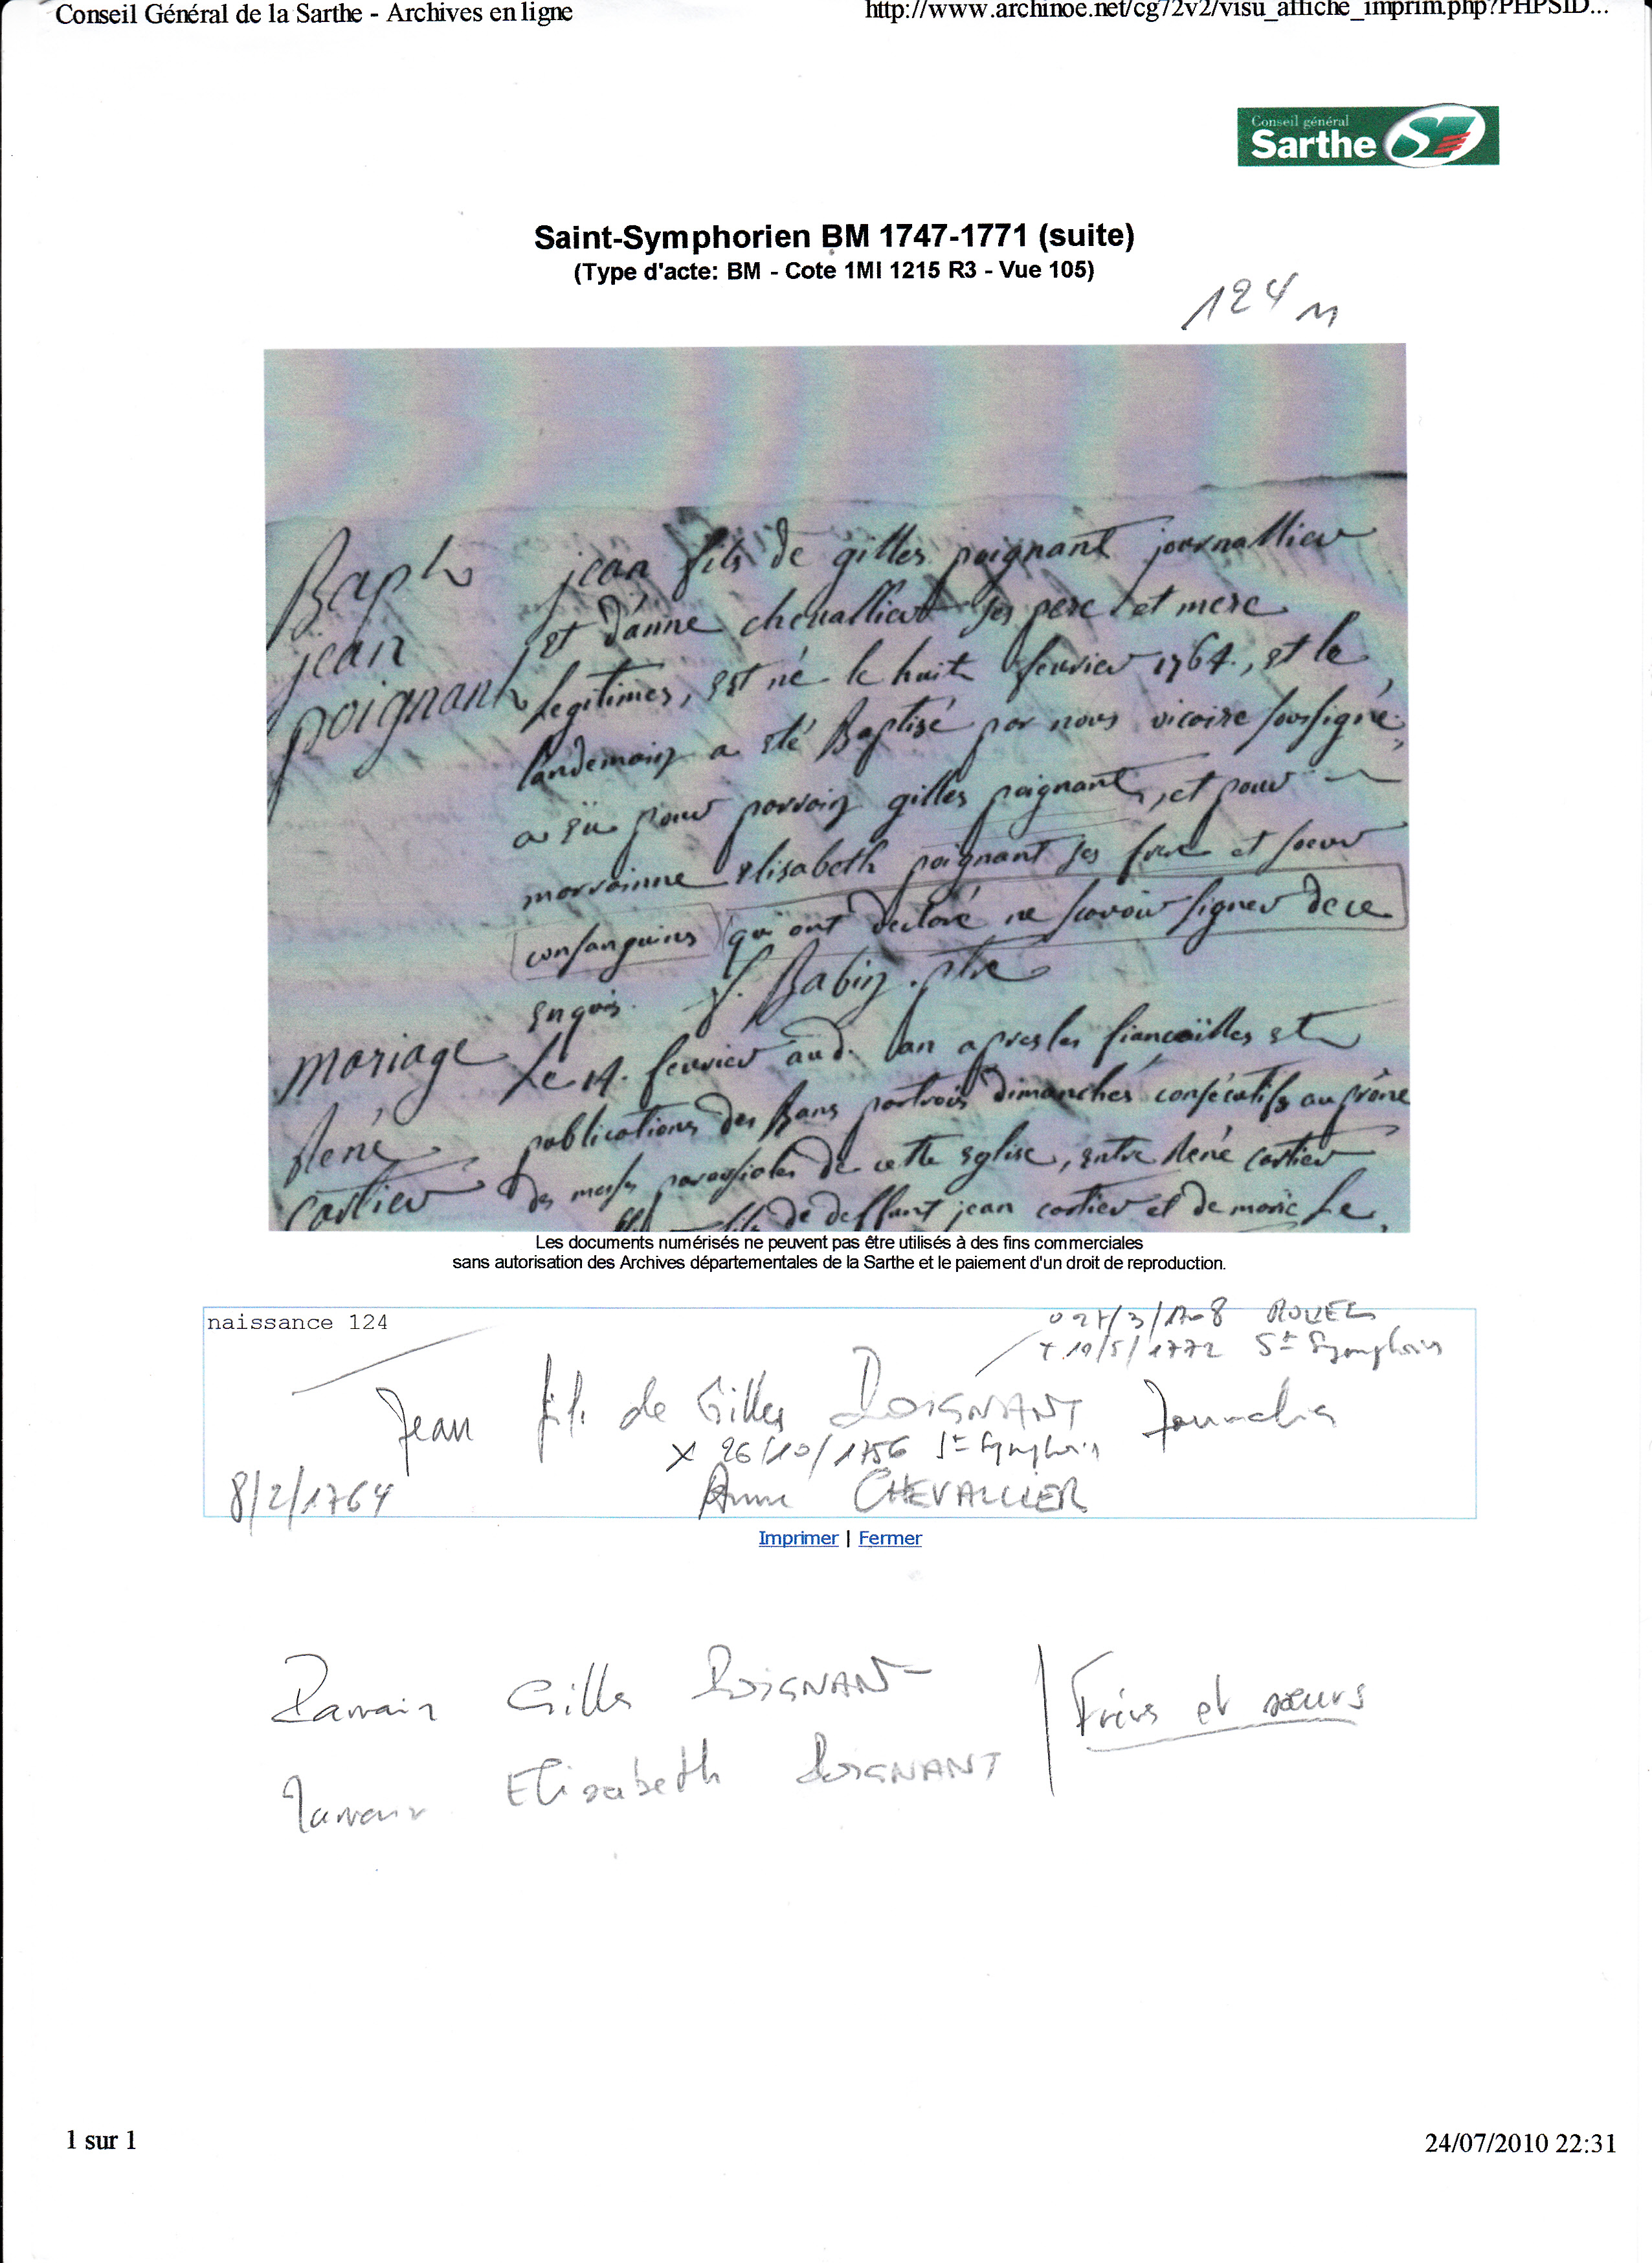 Conseil Général de la Sarthe - Archives en ligne
http://www.archinoe.net/cg72v2/visu_affiche_imprim.php?PHPSID...
Conseil général
Sarthe
Saint-Symphorien BM 1747-1771 (suite)
(Type d'acte: BM - Cote 1MI 1215 R3 - Vue 105)
124
Bapt
jean
poignant
jean fils de gilles poignant journallier
et d'anne chevallier ses pere et mere
legitimes, est né le huit fevrier 1764, et le
landemain a eté Baptisé par nous vicaire soussigné,
a eü pour parrain gilles poignant, et pour
marrainne elisabeth poignant ses frere et soeur
consanguins qui ont declaré ne scavoir signer de ce
enquis. Babin. ptre
mariage
René
cartier
Le 14. fevrier aud. an apres les fiancailles et
publications des Bans par trois dimanches consécutifs au prône
des messes paroissiales de cette eglise, entre René cartier
fils de deffunt jean cartier et de marie Le
Les documents numérisés ne peuvent pas être utilisés à des fins commerciales
sans autorisation des Archives départementales de la Sarthe et le paiement d'un droit de reproduction.
naissance 124
o 27/3/1708 ROUEZ
+ 10/5/1772 St Symphorien
Jean fils de Gilles POIGNANT Journalier
x 26/10/1756 St Symphorien
8/2/1764
Anne CHEVALLIER
Imprimer | Fermer
Parrain Gilles POIGNANT
Frères et sœurs
Marraine Elisabeth POIGNANT
1 sur 1
24/07/2010 22:31